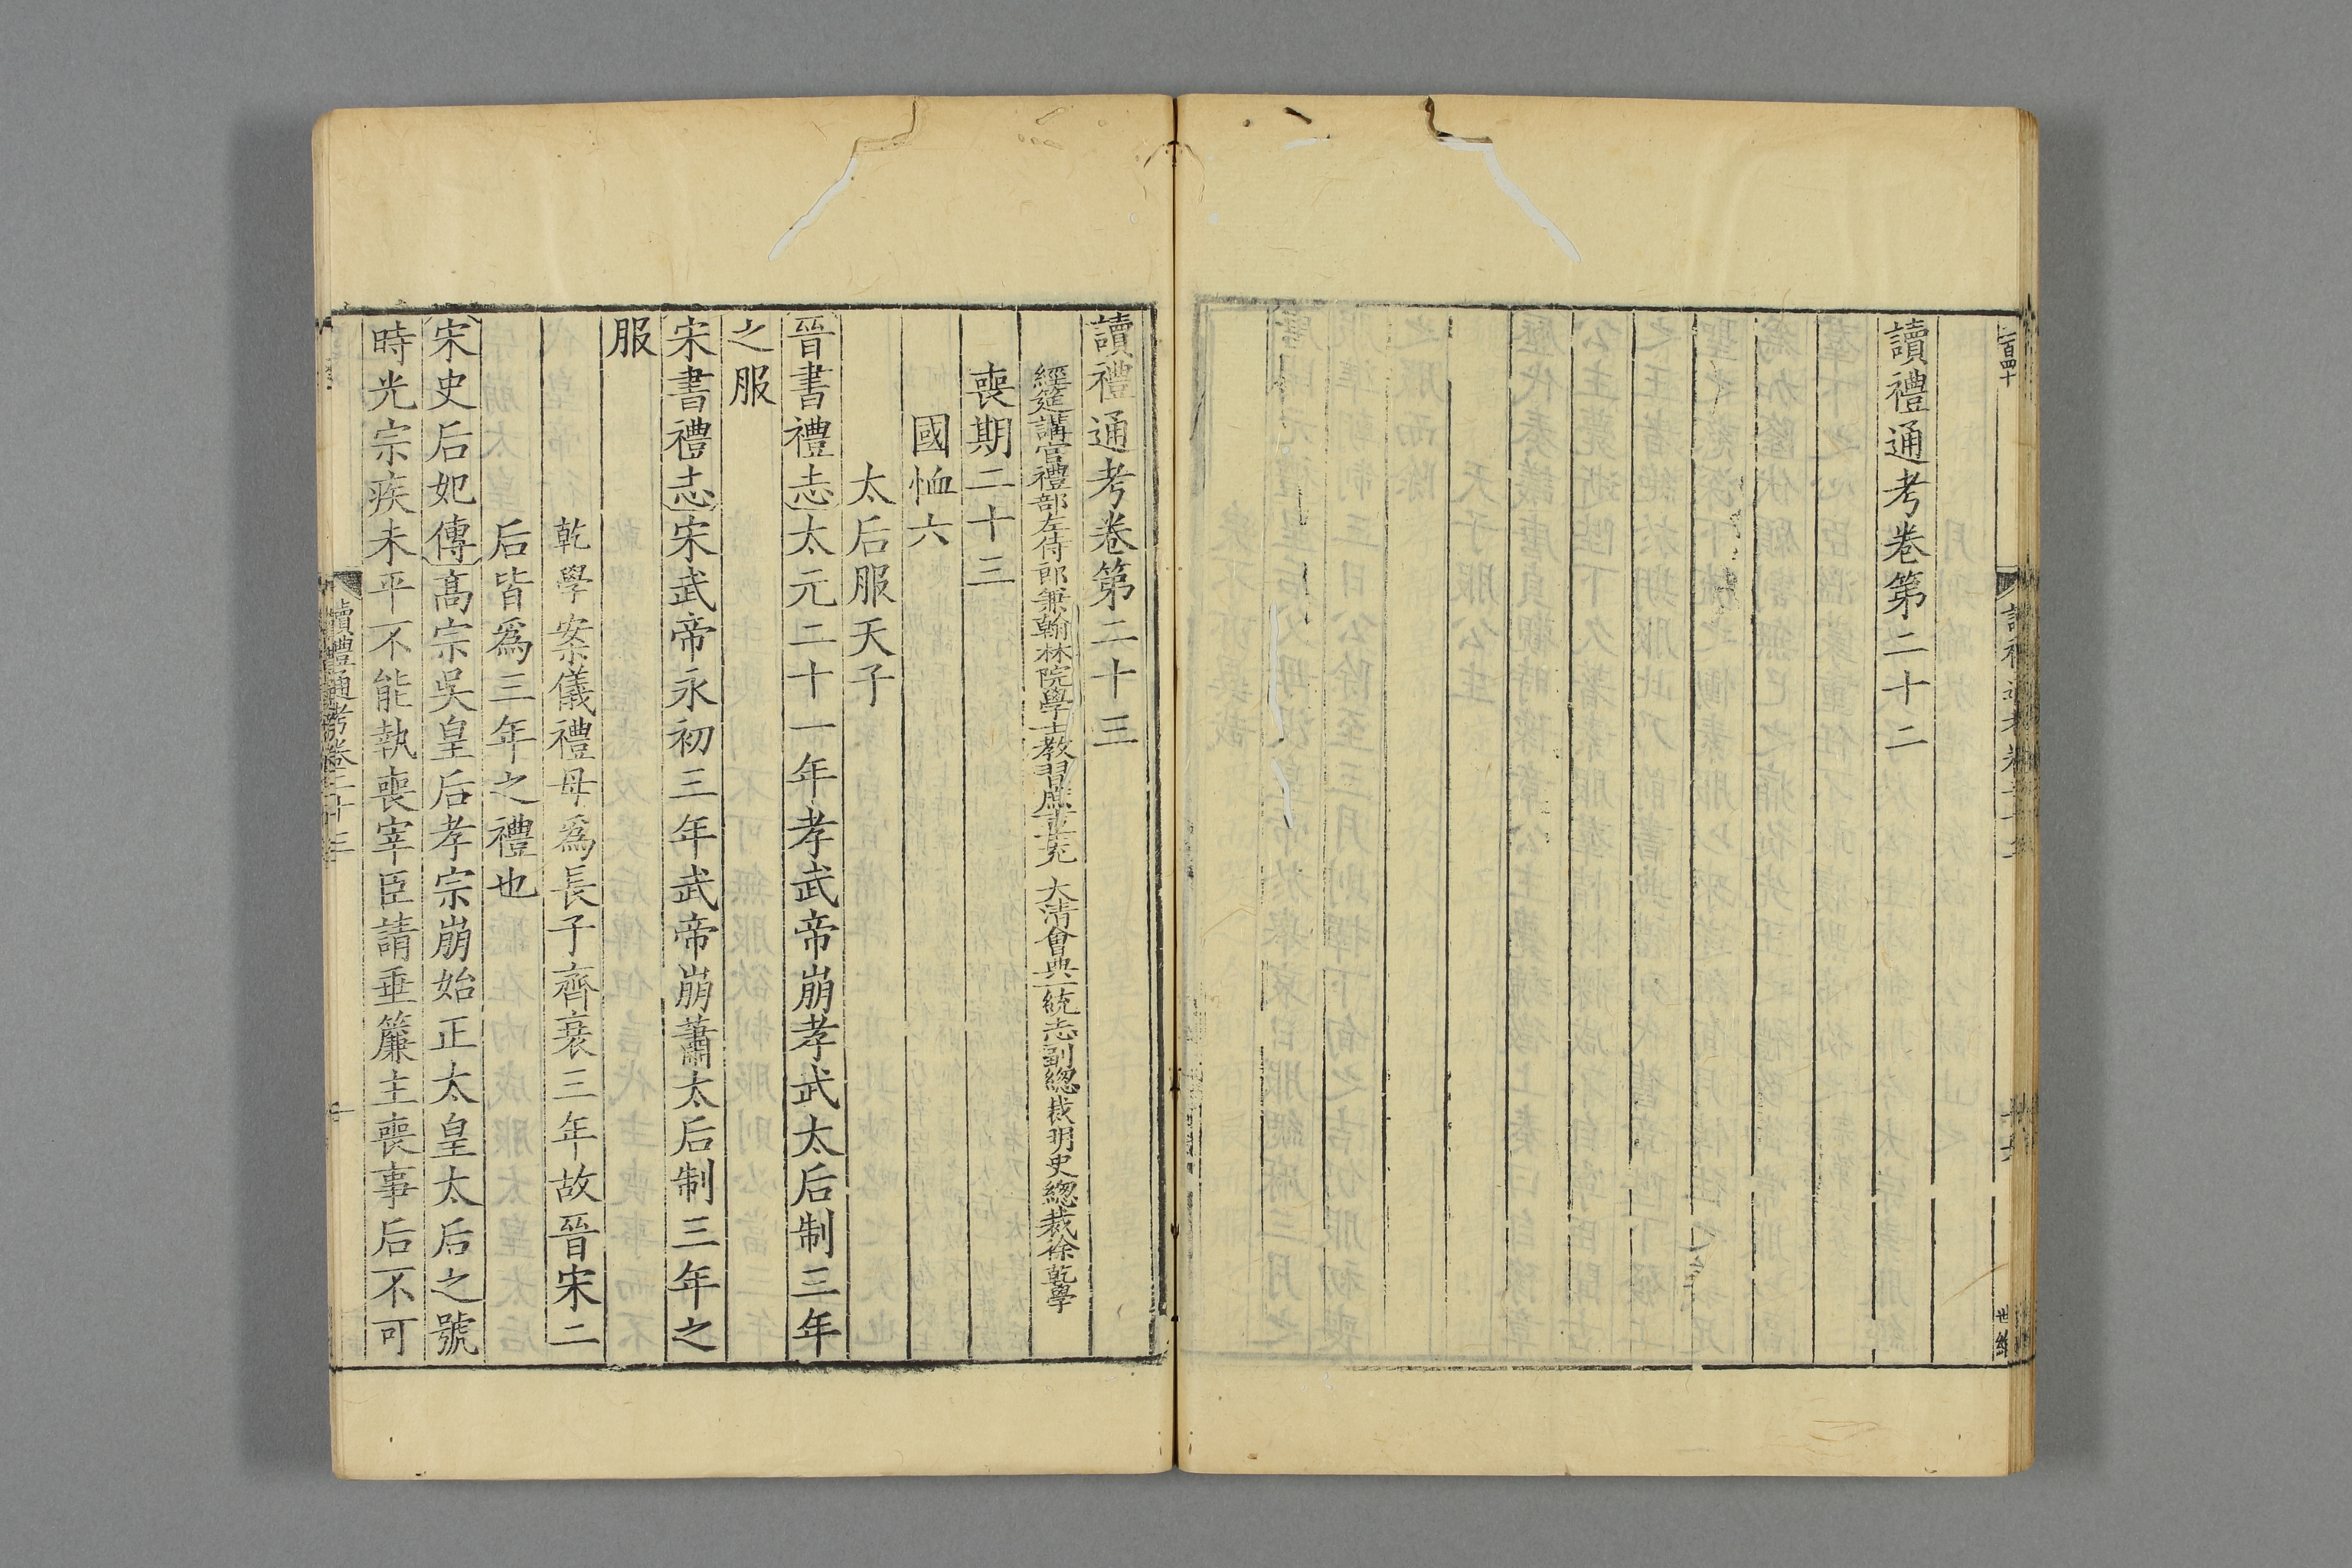 讀禮通考卷第二十二
讀禮通考卷第二十三
經筵講官禮部左侍郎兼翰林院學士教習庶吉士充 大清會典一統志副總裁明史總裁徐乾學
喪期二十三
國恤六
太后服天子
晉書禮志太元二十一年孝武帝崩孝武太后制三年
之服
宋書禮志宋武帝永初三年武帝崩蕭太后制三年之
服
乾學案儀禮母爲長子齊衰三年故晉宋二
后皆爲三年之禮也
宋史后妃傳高宗吳皇后孝宗崩始正太皇太后之號
時光宗疾未平不能執喪宰臣請垂簾主喪事后不可
讀禮通考卷二十三